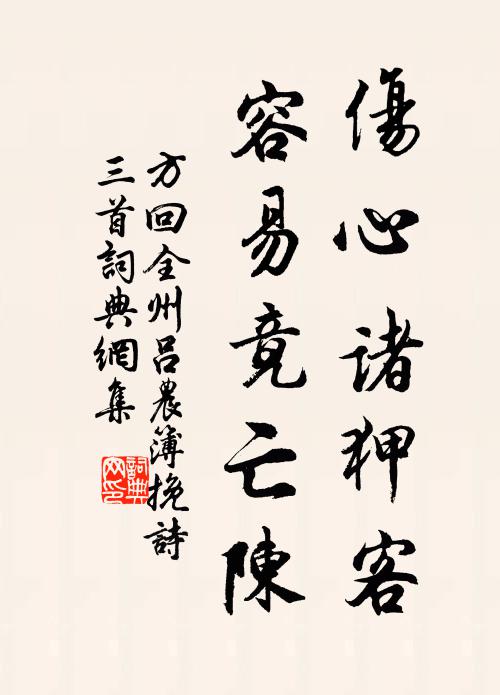 傷心諸狎客
容易竟亡陳
方回全州呂農簿挽詩
三首詞典網集
詞典
網印